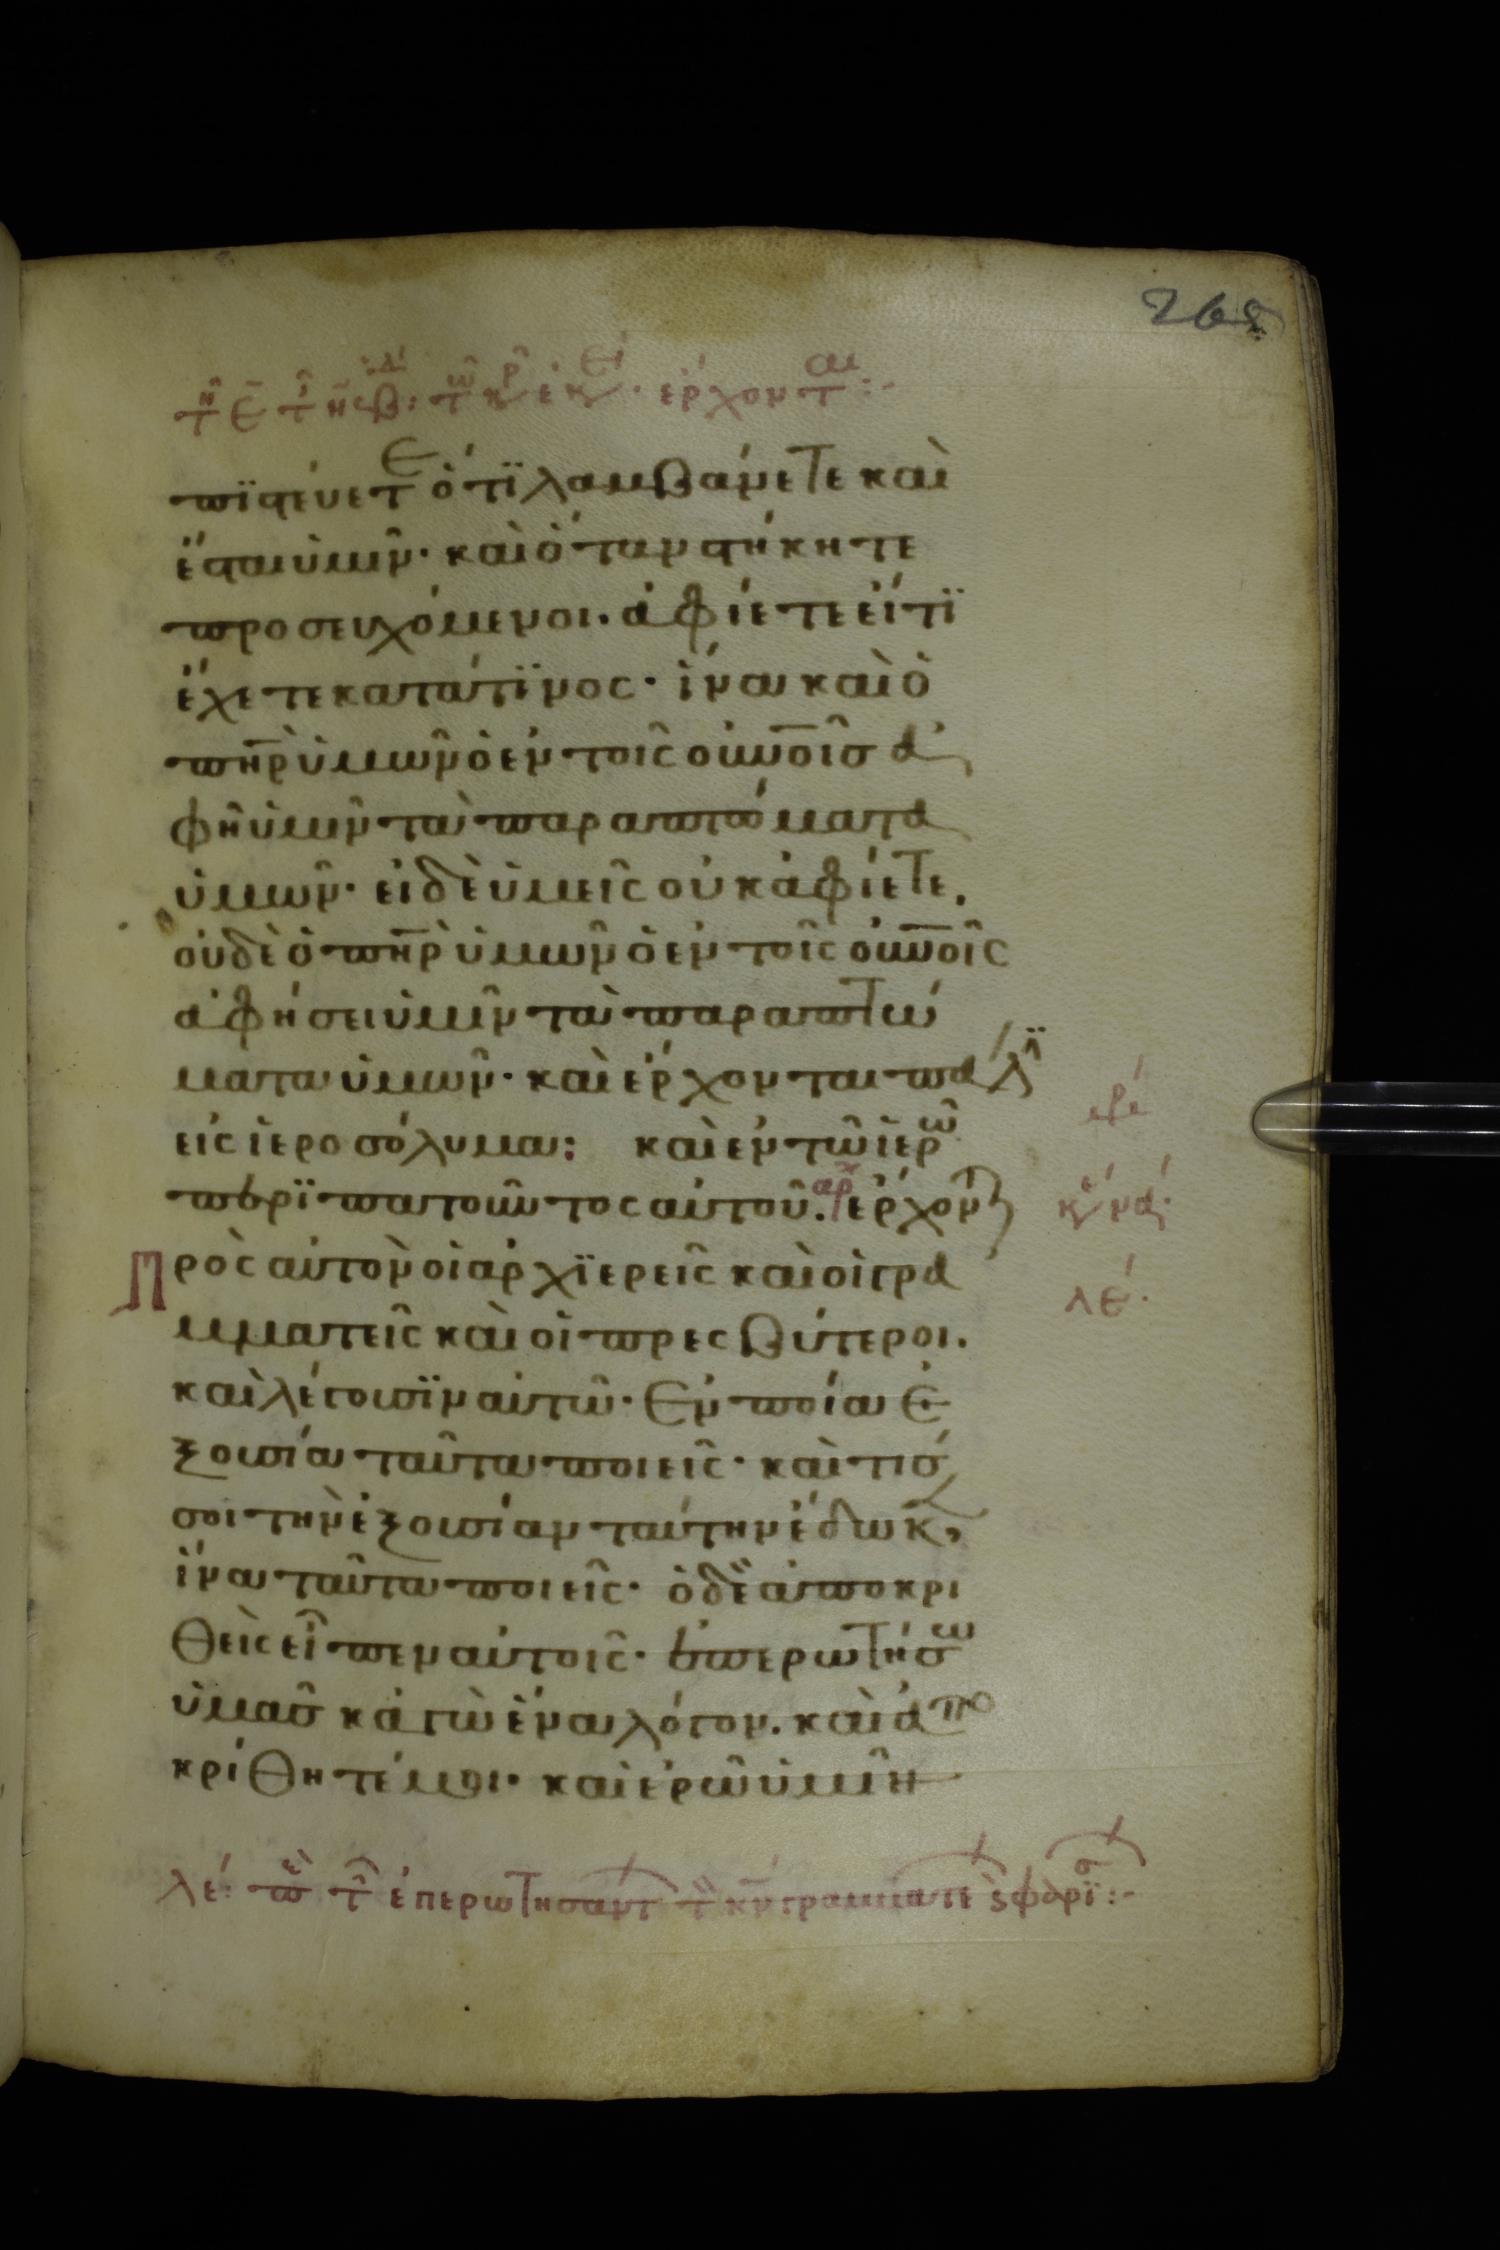 268
ἔρχονται:-
πιστεύετε ὅτι λαμβάνετε καὶ
ἔσται ὑμῖν· καὶ ὅταν στήκητε
προσευχόμενοι. ἀφίετε εἴ τι
ἔχετε κατά τινος· ἵνα καὶ ὁ
πηρ ὑμῶν ὁ ἐν τοῖς οὐνοῖς ἀ
φῆ ὑμῖν τὰ παραπτώματα
ὑμῶν· εἰ δὲ ὑμεῖς οὐκ ἀφίετε.
οὐδὲ ὁ πηρ ὑμῶν ὁ ἐν τοῖς οὐνοῖς
ἀφήσει ὑμῖν τὰ παραπτώ
ματα ὑμῶν· καὶ ἔρχονται πάλι
εἰς ἱεροσόλυμα: καὶ ἐν τῶ ἱερῶ
περιπατοῦντος αὐτοῦ. αρχ ἔρχονται
Πρὸς αὐτὸν οἱ ἀρχιερεῖς καὶ οἱ γρα
μματεῖς καὶ οἱ πρεσβύτεροι.
καὶ λέγουσιν αὐτῶ· Ἐν ποία ἐ
ξουσία ταῦτα ποιεῖς· καὶ τίσ
σοι τὴν ἐξουσίαν ταύτην ἔδωκε,
ἵνα ταῦτα ποιεῖς· ὁ δὲ ἀποκρι
θεὶς εἶπεν αὐτοῖς· ἐπερωτήσω
ὑμᾶσ κἀγὼ ἕνα λόγον. καὶ ἀπο
κρίθητέ μοι· καὶ ἐρῶ ὑμῖν
λέ·
λέ: π τ ἐπερωτησαντ τ κν γραμματε ϛ φαρι:-